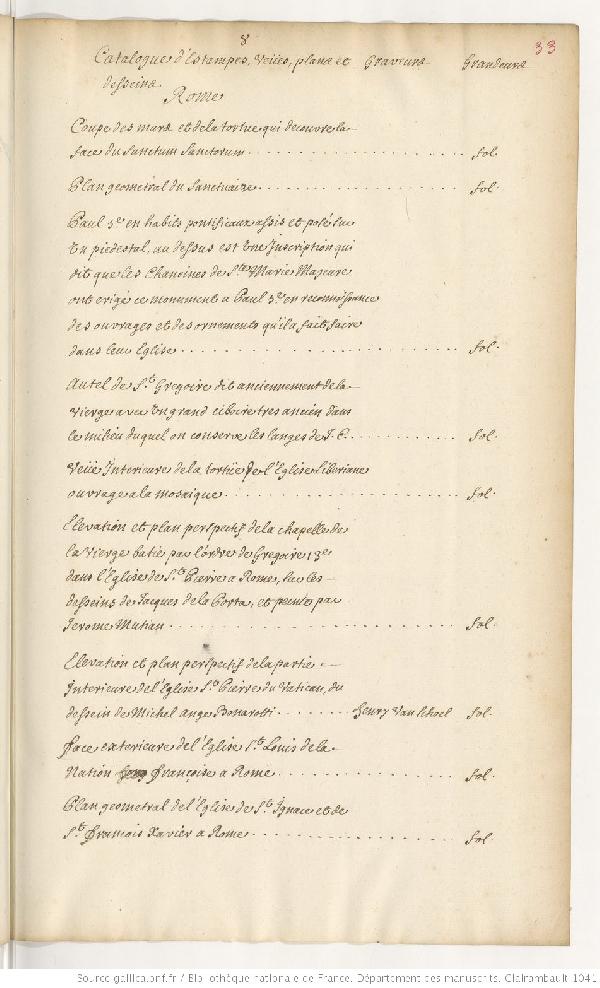 8
33
Catalogue d'Estampes, Veües, plans et Graveurs Grandeurs
desseins
Rome
Coupe des murs et de la tortue qui decouvre la
face du Sanctum Sanctorum . . . . . . . . fol.
Plan geometral du Sanctuaire . . . . . . . . fol.
Paul 5e. en habits pontificaux assis et posé sur
un piedestal, au dessus est une Inscription qui
dit que les Chanoines de Ste Marie Majeure
ont erigé ce monument a Paul 5e. en reconnoissance
des ouvrages et des ornements qu'il a fait faire
dans leur Eglise . . . . . . . . fol.
Autel de St. Gregoire dit anciennement de la
Vierge avec un grand ciboire tres ancien dans
le milieu duquel on conserve les langes de J. C. . . . . . . . . fol.
Veüe Interieure de la tortüe de l'Eglise Liberiane
ouvrage a la mosaique . . . . . . . . fol.
Elevation et plan perspectif de la chapelle de
la Vierge batie par l'ordre de Gregoire 13e
dans l'Eglise de St. Pierre a Rome, sur les
desseins de Jacques de la Porta, et peinte par
Jerome Mutian . . . . . . . . fol.
Elevation et plan perspectif de la partie
Interieure de l'Eglise St. Pierre du Vatican, du
dessein de Michel ange Bonarotti . . . . . . . Henry Van Schoel fol.
face exterieure de l'Eglise St. Louis de la
Nation françoise a Rome . . . . . . . . fol.
Plan geometral de l'Eglise de St. Ignace et de
St. François Xavier a Rome . . . . . . . . fol.
Source gallica.bnf.fr / Bibliothèque nationale de France. Département des manuscrits. Clairambault 1041